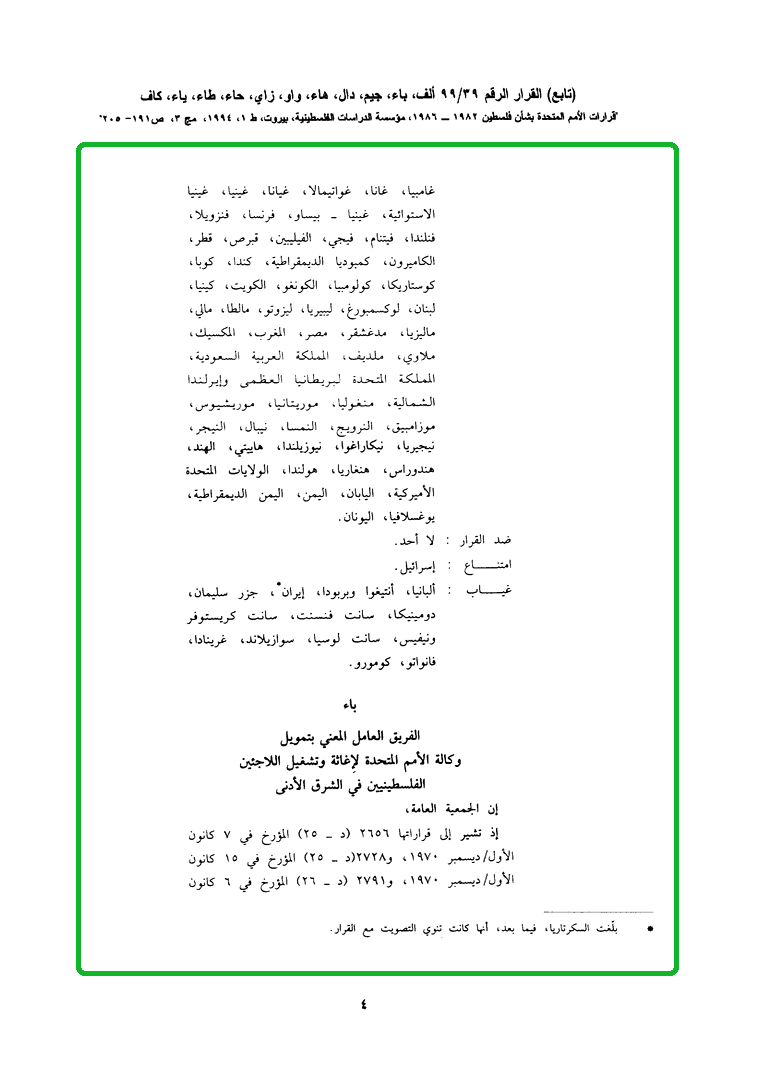 (تابع) القرار الرقم ٩٩/٣٩ ألف، باء، جيم، دال، هاء، واو، زاي، حاء، طاء، ياء، كاف
"قرارات الأمم المتحدة بشأن فلسطين ١٩٨٢ ــ ١٩٨٦، مؤسسة الدراسات الفلسطينية، بيروت، ط ١، ١٩٩٤، مج ٣، ص١٩١- ٢٠٥"
غامبيا، غانا، غواتيمالا، غيانا، غينيا، غينيا
الاستوائية، غينيا ـ بيساو، فرنسا، فنزويلا،
فنلندا، فيتنام، فيجي، الفيليبين، قبرص، قطر،
الكاميرون، كمبوديا الديمقراطية، كندا، كوبا،
كوستاريكا، كولومبيا، الكونغو، الكويت، كينيا،
لبنان، لوكسمبورغ، ليبيريا، ليزوتو، مالطا، مالي،
ماليزيا، مدغشقر، مصر، المغرب، المكسيك،
ملاوي، ملديف، المملكة العربية السعودية،
المملكة المتحدة لبريطانيا العظمى وإيرلندا
الشمالية، منغوليا، موريتانيا، موريشيوس،
موزامبيق، النرويج، النمسا، نيبال، النيجر،
نيجيريا، نيكاراغوا، نيوزيلندا، هاييتي، الهند،
هندوراس، هنغاريا، هولندا، الولايات المتحدة
الأميركية، اليابان، اليمن، اليمن الديمقراطية،
يوغسلافيا، اليونان.
ضد القرار : لا أحد.
امتنـــــاع : إسرائيل.
غيـــــاب : ألبانيا، أنتيغوا وبربودا، إيران*، جزر سليمان،
دومينيكا، سانت فنسنت، سانت كريستوفر
ونيفيس، سانت لوسيا، سوازيلاند، غرينادا،
فانواتو، كومورو.
باء
الفريق العامل المعني بتمويل
وكالة الأمم المتحدة لإغاثة وتشغيل اللاجئين
الفلسطينيين في الشرق الأدنى
إن الجمعية العامة،
إذ تشير إلى قراراتها ٢٦٥٦ (د ـ ٢٥) المؤرخ في ٧ كانون
الأول/ديسمبر ١٩٧٠، و٢٧٢٨(د ـ ٢٥) المؤرخ في ١٥ كانون
الأول/ديسمبر ١٩٧٠، و٢٧٩١ (د ـ ٢٦) المؤرخ في ٦ كانون
* بلّغت السكرتاريا، فيما بعد، أنها كانت تنوي التصويت مع القرار.
٤